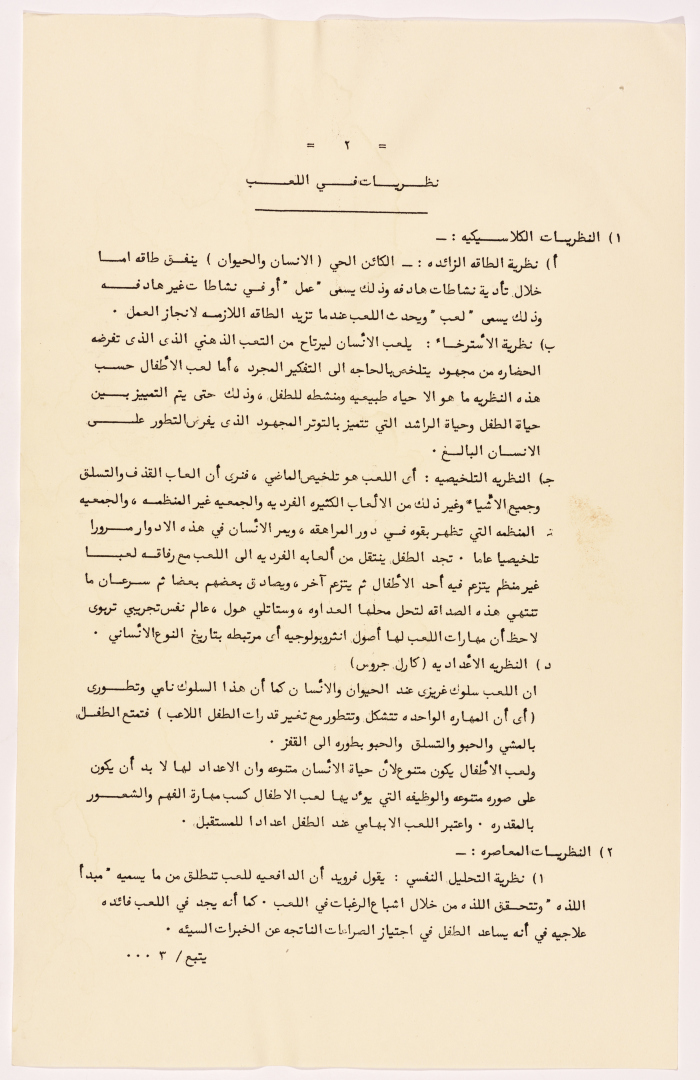 = ٢ =
نظريات في اللعب
١) النظريات الكلاسيكيه : ـ
أ) نظرية الطاقه الزائده : ـ الكائن الحي ( الانسان والحيوان ) ينفق طاقه اما
خلال تأدية نشاطات هادفه وذلك يسمى "عمل" أو في نشاطات غير هادفه
وذلك يسمى "لعب" ويحدث اللعب عندما تزيد الطاقه اللازمه لانجاز العمل .
ب) نظرية الأسترخاء : يلعب الأنسان ليرتاح من التعب الذهني الذى الذى تفرضه
الحضاره من مجهود يتلخص بالحاجه الى التفكير المجرد ، أما لعب الأطفال حسب
هذه النظريه ما هو الا حياه طبيعيه ومنشطه للطفل ، وذلك حتى يتم التمييز بين
حياة الطفل وحياة الراشد التي تتميز بالتوتر المجهود الذى يفرض التطور على
الانسان البالغ .
جـ) النظريه التلخيصيه : أى اللعب هو تلخيص الماضي ، فنرى أن العاب القذف والتسلق
وجميع الأشياء وغير ذلك من الألعاب الكثيره الفرديه والجمعيه غير المنظمه ، والجمعيه
المنظمه التي تظهر بقوه في دور المراهقه ، ويمر الأنسان في هذه الادوار مرورا
تلخيصيا عاما . تجد الطفل ينتقل من ألعابه الفرديه الى اللعب مع رفاقه لعبا
غير منظم يتزعم فيه أحد الأطفال ثم يتزعم آخر ، ويصادق بعضهم بعضا ثم سرعان ما
تنتهي هذه الصداقه لتحل محلها العداوه ، وستانلي هول ، عالم نفس تجريبي تربوى
لاحظ أن مهارات اللعب لها أصول انثروبولوجيه أى مرتبطه بتاريخ النوع الأنساني .
د) النظريه الأعداديه (كارل جروس)
ان اللعب سلوك غريزى عند الحيوان والأنسان كما أن هذا السلوك نامي وتطورى
( أى أن المهاره الواحده تتشكل وتتطور مع تغير قدرات الطفل اللاعب ) فتمتع الطفل
بالمشي والحبو والتسلق والحبو بطوره الى القفز .
ولعب الأطفال يكون متنوع لأن حياة الانسان متنوعه وان الاعداد لها لا بد أن يكون
على صوره متنوعه والوظيفه التي يؤديها لعب الاطفال كسب مهارة الفهم والشعور
بالمقدره . واعتبر اللعب الايهامي عند الطفل اعدادا للمستقبل .
٢) النظريات المعاصره : ـ
١) نظرية التحليل النفسي : يقول فرويد أن الدافعيه للعب تنطلق من ما يسميه "مبدأ
اللذه" وتتحقق اللذه من خلال اشباع الرغبات في اللعب . كما أنه يجد في اللعب فائده
علاجيه في أنه يساعد الطفل في اجتياز الصراعات الناتجه عن الخبرات السيئه .
يتبع / ٣ ...